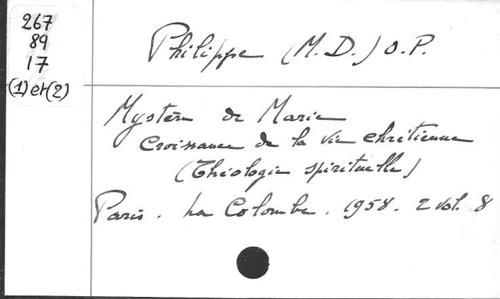 267
89
17
(1) et (2)
Philippe (M.D.) O.P.
Mystère de Marie
Croissance de la vie chrétienne
(Théologie spirituelle)
Paris. La Colombe. 1958. 2 vol. 8